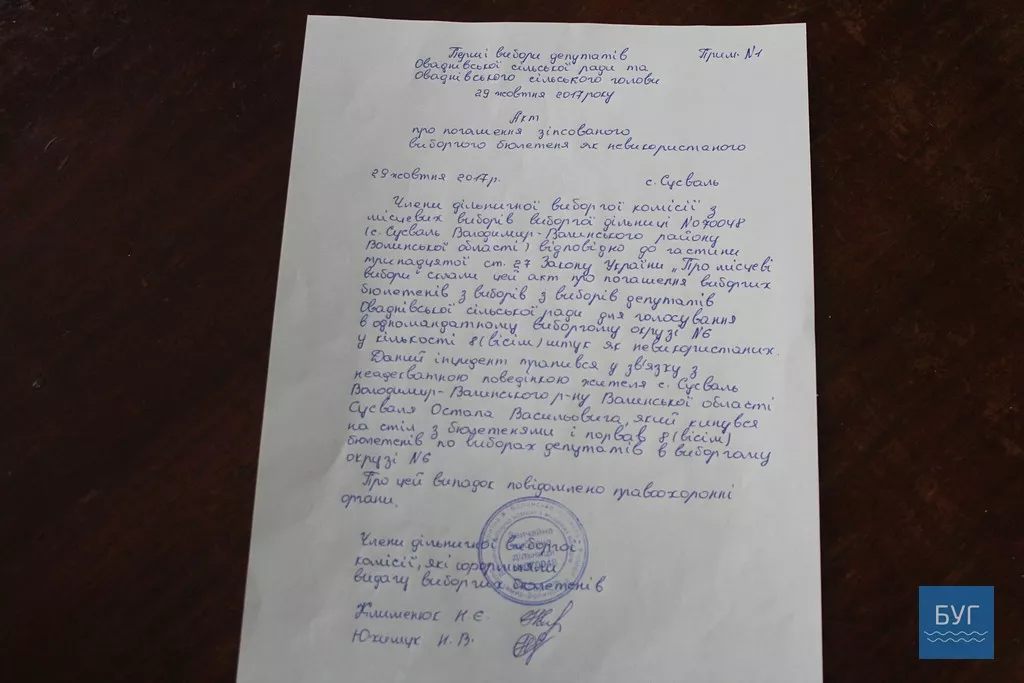 Перші вибори депутатів Прим. №1
Оваднівської сільської ради та
Оваднівського сільського голови
29 жовтня 2017 року
Акт
про погашення зіпсованого
виборчого бюлетеня як невикористаного
29 жовтня 2017р. с. Сусваль
Члени дільничної виборчої комісії з
місцевих виборів виборчої дільниці №070048
(с. Сусваль Володимир-Волинського району
Волинської області) відповідно до частини
тринадцятої ст. 27 Закону України „Про місцеві
вибори" склали цей акт про погашення виборчих
бюлетенів з виборів з виборів депутатів
Оваднівської сільської ради для голосування
в одномандатному виборчому окрузі №6
у кількості 8 (вісім) штук як невикористаних.
Даний інцидент трапився у зв'язку з
неадекватною поведінкою жителя с. Сусваль
Володимир-Волинського р-ну Волинської області
Сусваля Остапа Васильовича, який кинувся
на стіл з бюлетенями і порвав 8 (вісім)
бюлетенів по виборах депутатів в виборчому
окрузі №6
Про цей випадок повідомлено правоохоронні
органи.
Члени дільничної виборчої
комісії, які
видачу виборчих бюлетенів
Клименюк Н. Є.
Юхимук Н. В.
БУГ